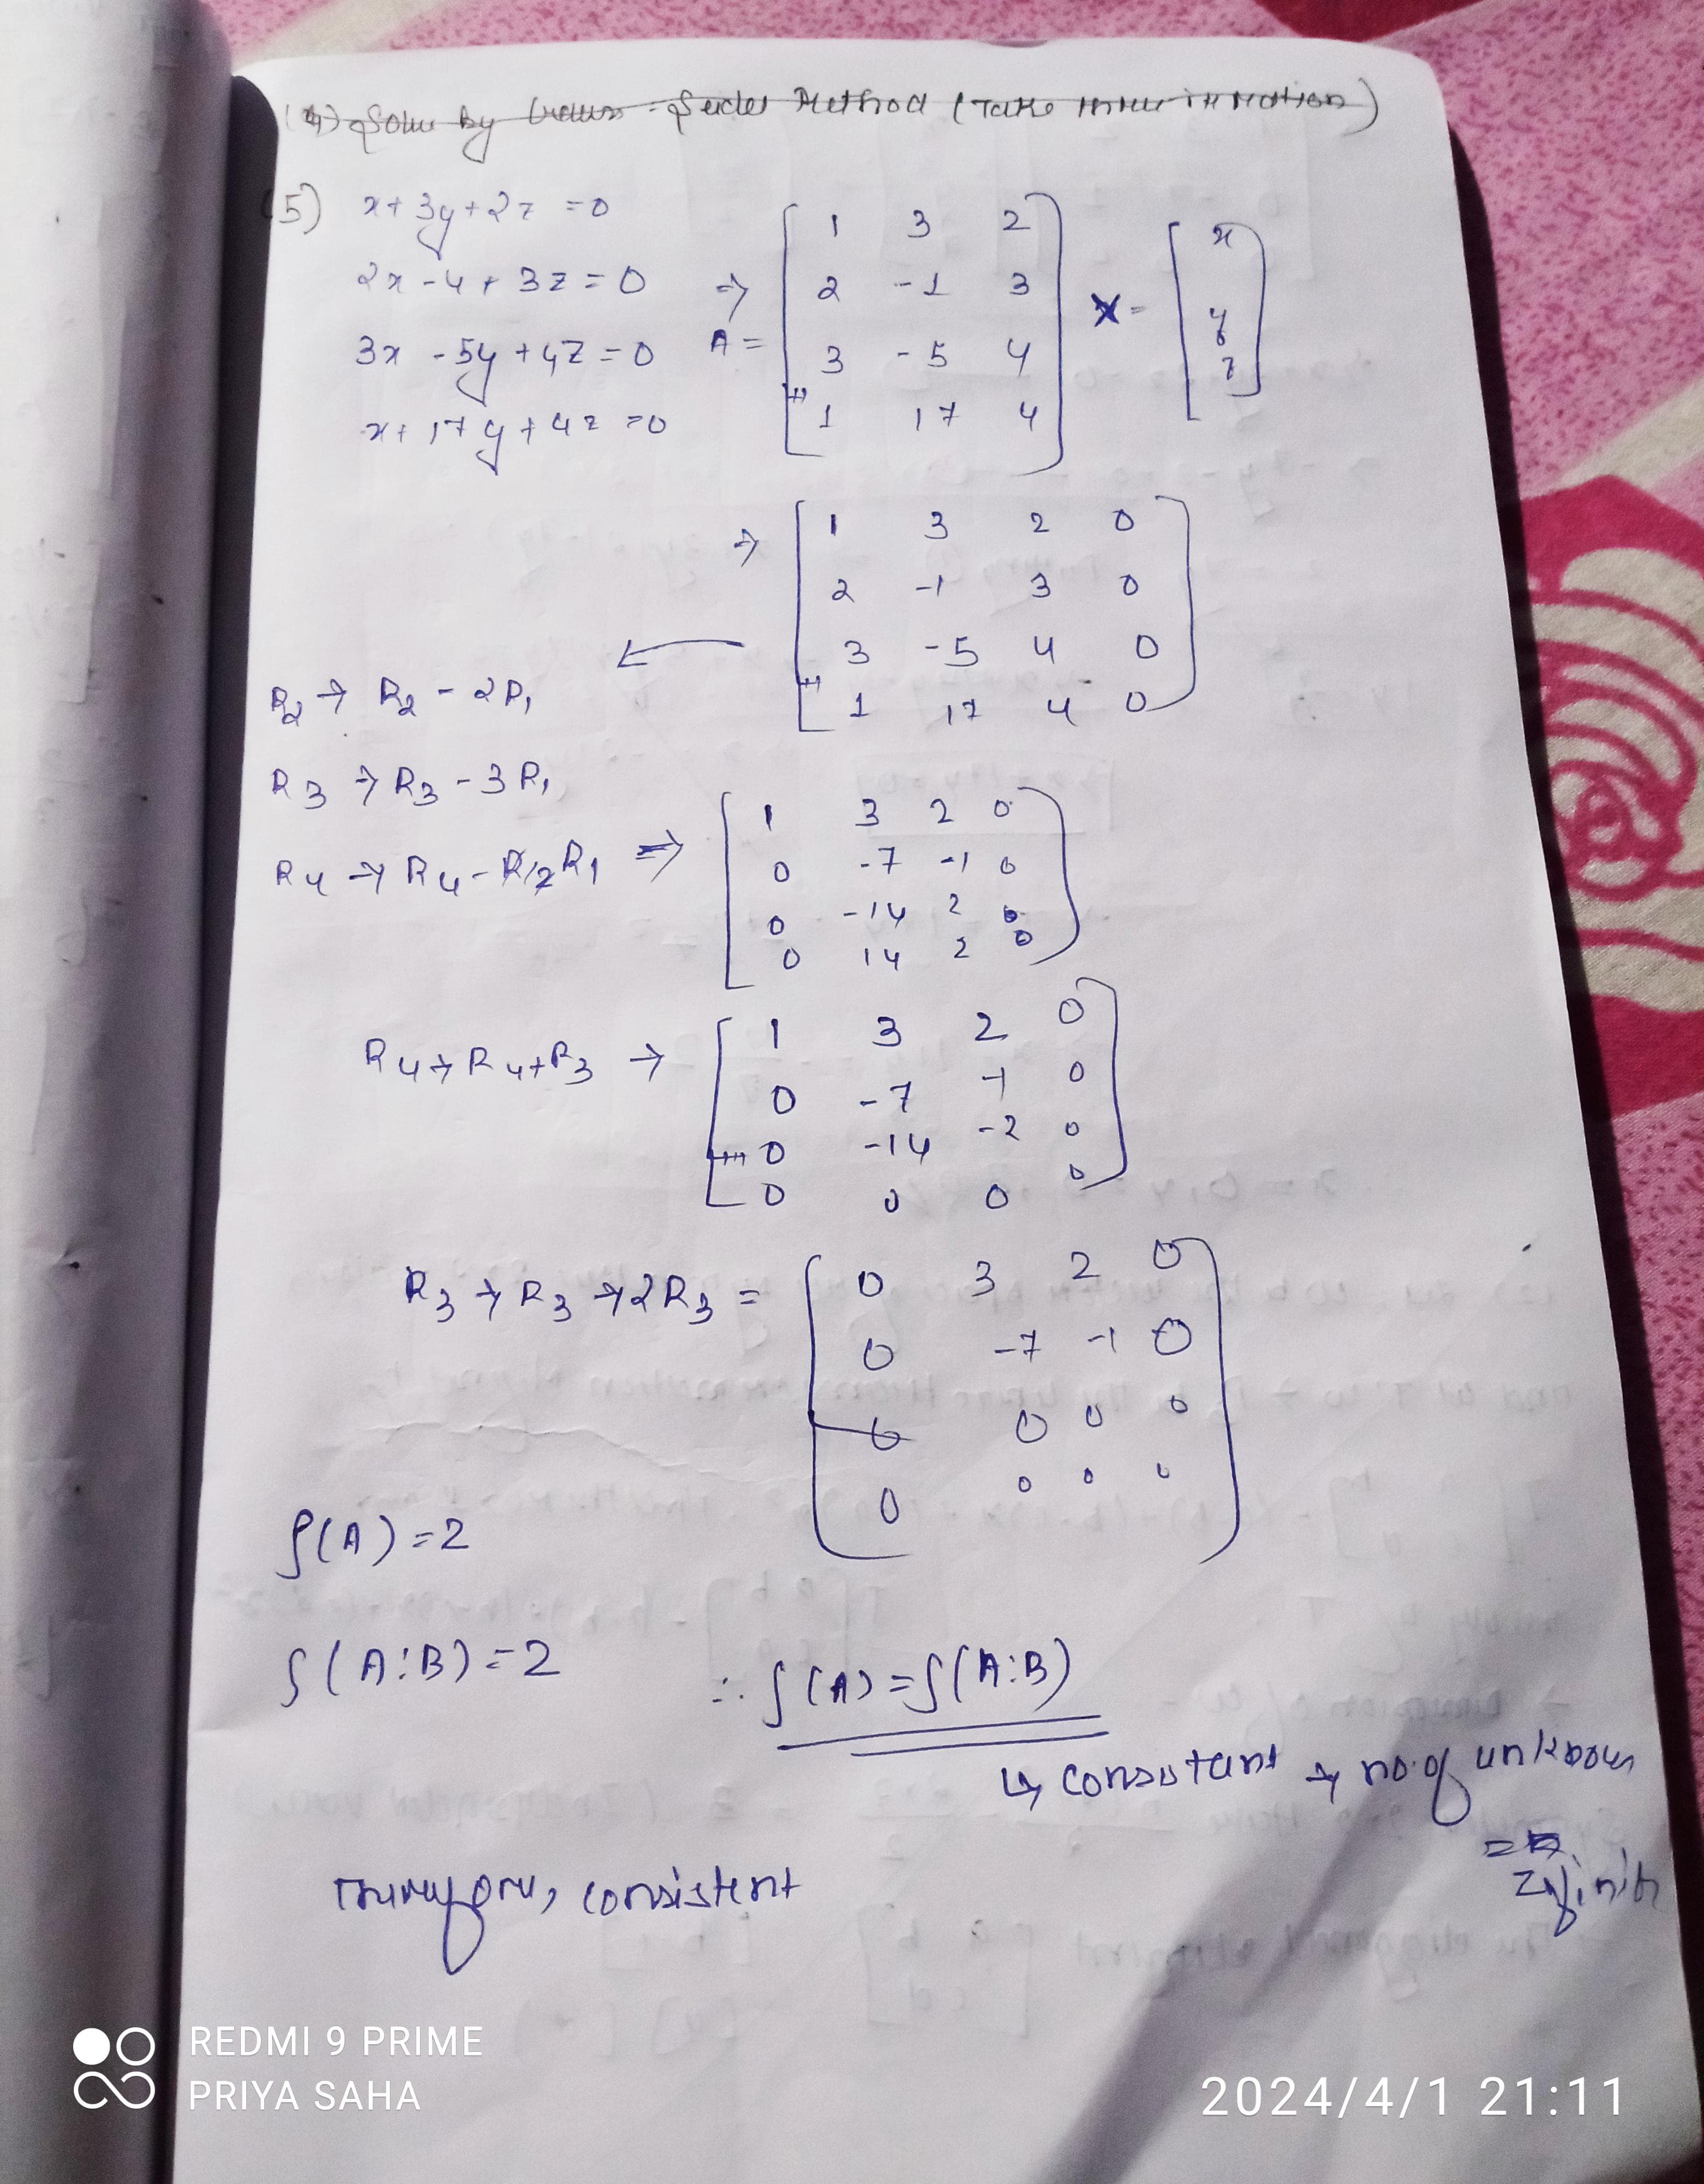 (4) Solve by Gauss-Seidel Method (Take three iteration)
(5) x+3y+2z =0
2x-y+3z=0
3x-5y+4z=0
x+17y+4z=0
⇒ A= [1 3 2
2 -1 3
3 -5 4
1 17 4]
X= [x
y
z]
⇒ [1 3 2 0
2 -1 3 0
3 -5 4 0
1 17 4 0]
R2 → R2 - 2R1
R3 → R3 - 3R1
R4 → R4 - R1 ⇒ [1 3 2 0
0 -7 -1 0
0 -14 2 0
0 14 2 0]
R4→R4+R3 → [1 3 2 0
0 -7 -1 0
0 -14 -2 0
0 0 0 0]
R3→R3→2R3 = [0 3 2 0
0 -7 -1 0
0 0 0 0
0 0 0 0]
ρ(A)=2
ρ(A:B)=2 ∴ ρ(A)=ρ(A:B)
↳ consistant → no. of unknown
Therefore, consistent
REDMI 9 PRIME
PRIYA SAHA
2024/4/1 21:11